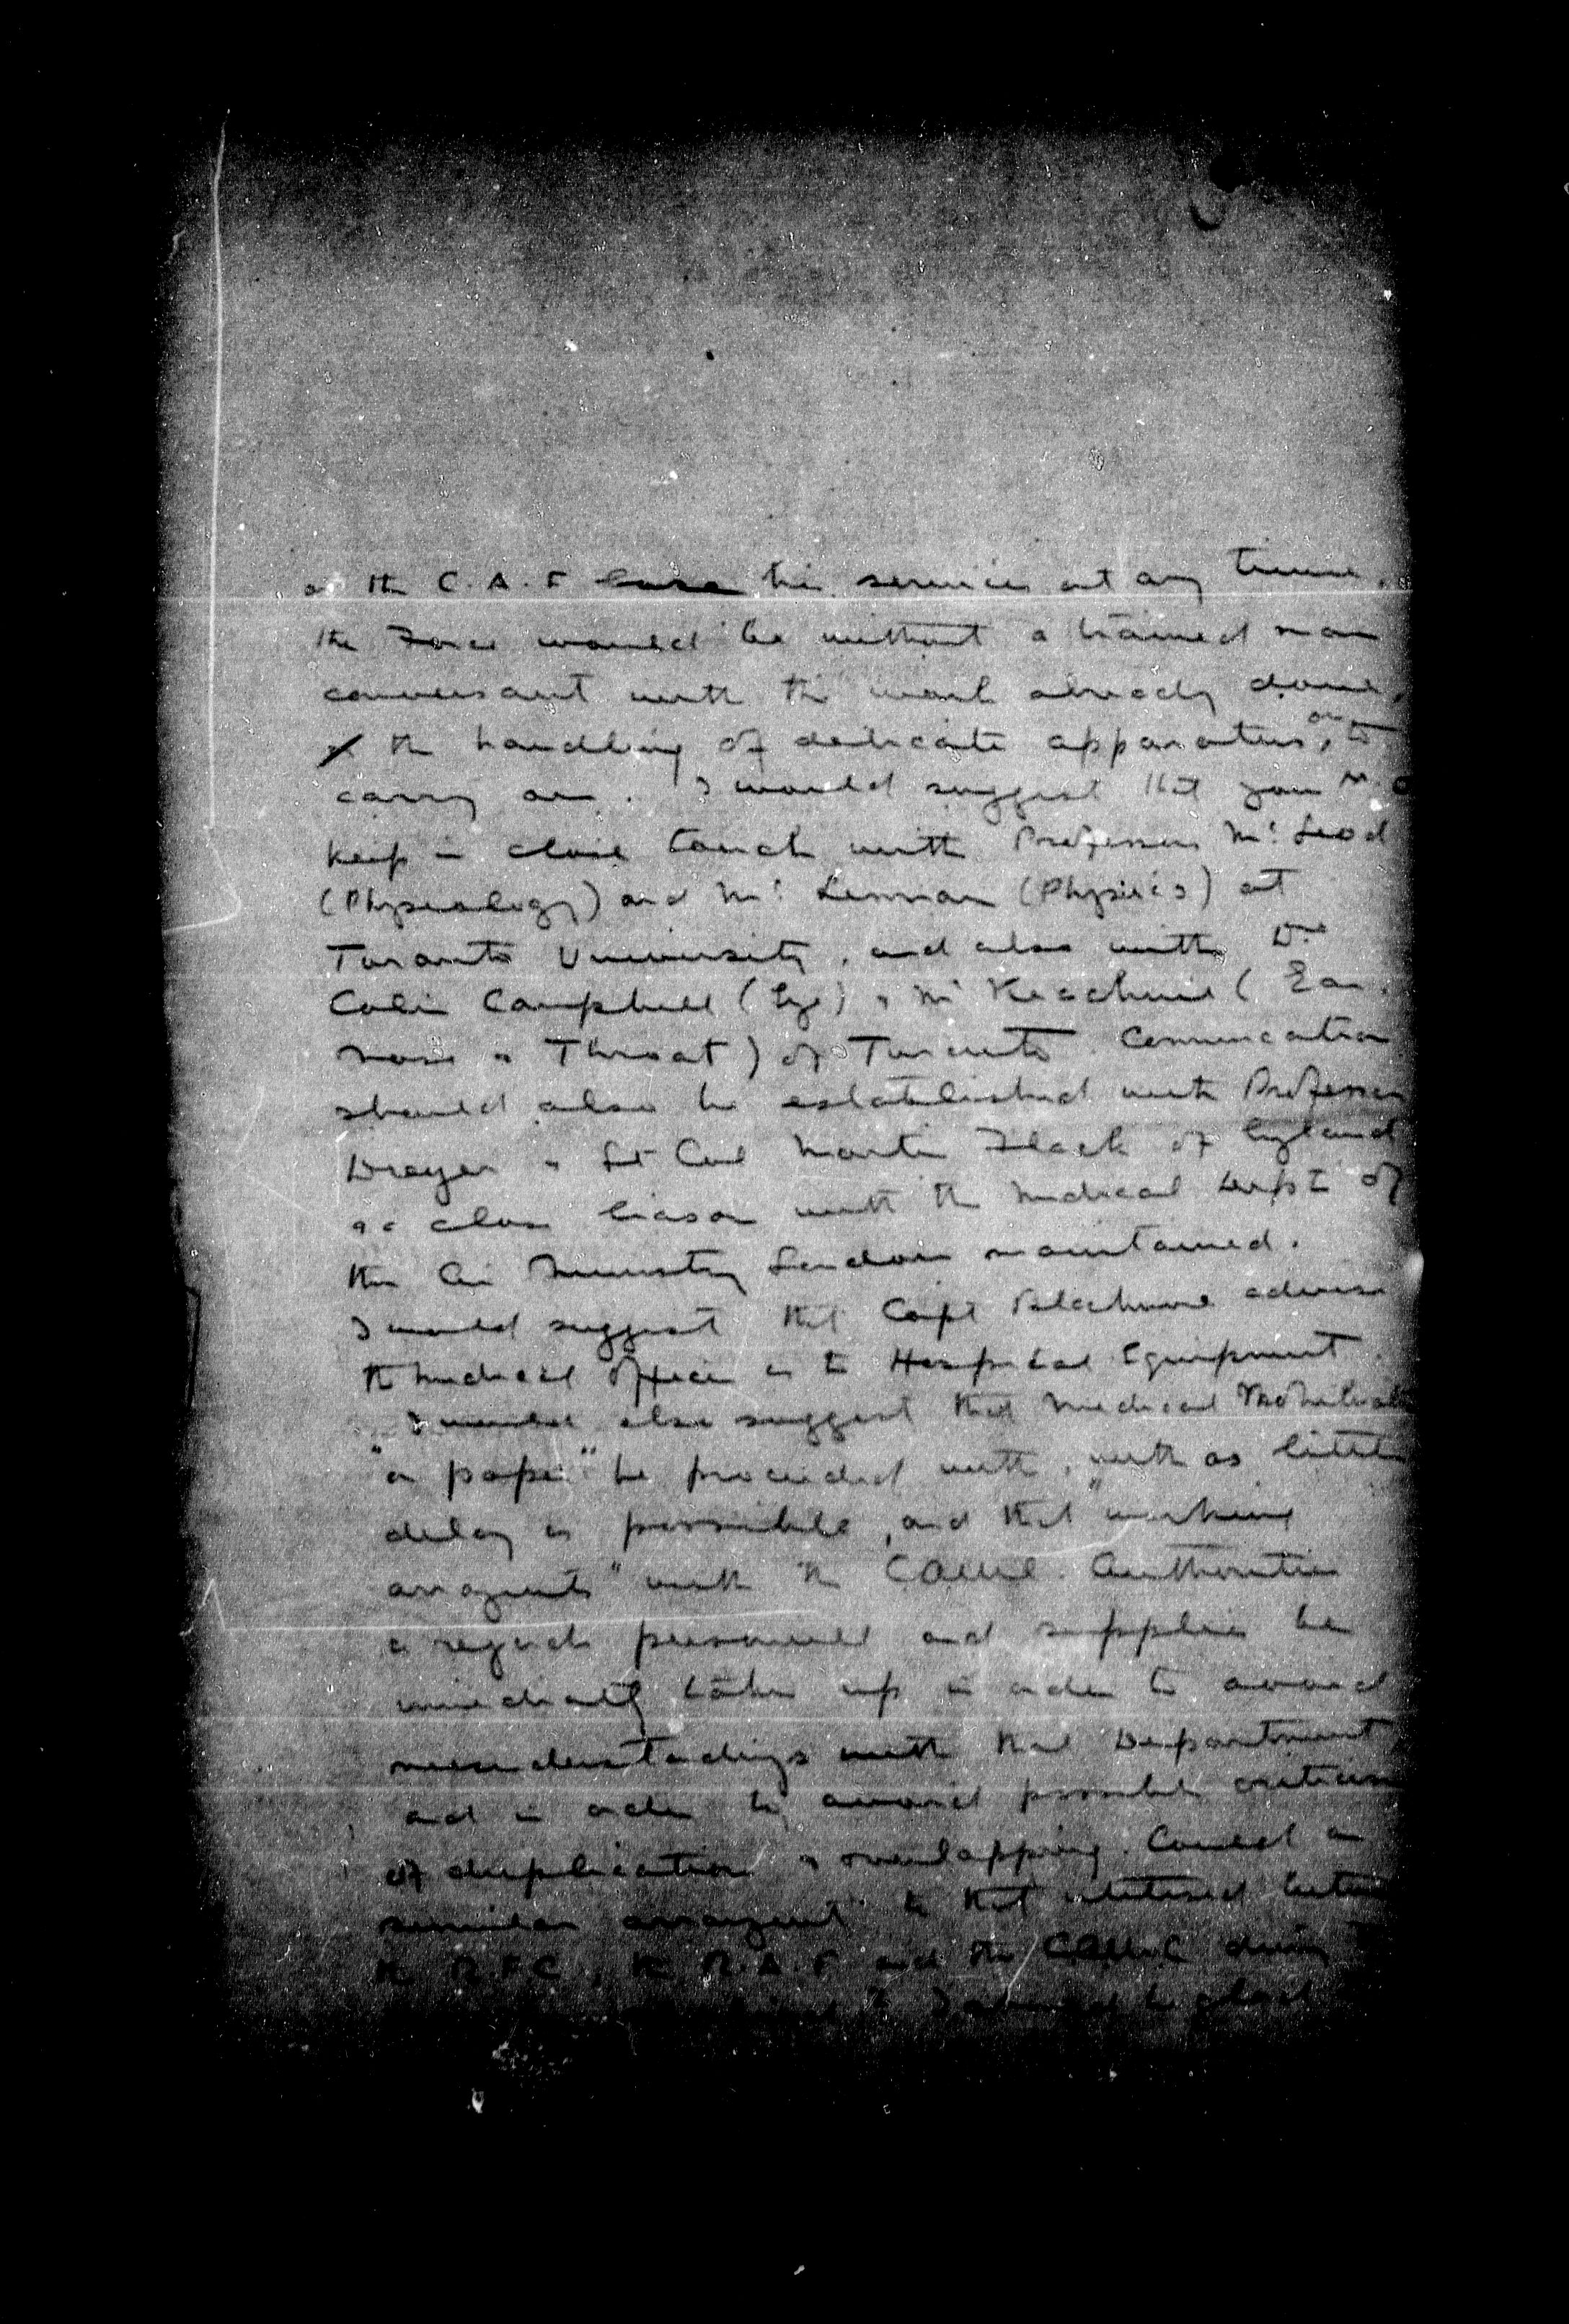 or the C.A.F lose his services at any time,
the Force would be without a trained man
conversant with the work already done,
the handling of delicate apparatus, or to
carry on. I would suggest that your M.O
keep in close touch with Professors Mc Leod
(Physiology) and Mc Lennan (Physics) at
Toronto University, and also with Drs
Colin Campbell (Eye) & Mc Keachnie (Ear
Nose & Throat) of Toronto. Communication
should also be established with Professor
Dreyer & Lt Col Martin Flack of England
& a close liason with the Medical Dept of
the Air Ministry London maintained.
I would suggest that Capt advise
the Medical Officer as to Hospital Equipment.
I would also suggest that Medical
"on paper" be proceeded with, with as little
delay as possible, and that "working
arrangements" with the CAMC. Authorities
as regards personnel and supplies be
immediately taken up in order to avoid
misunderstandings with that Department
and in order to avoid possible criticism
of duplication & overlapping. Could a
similar arrangement to that between
the R.F.C, the R.A.F and the CAMC during
I should be glad